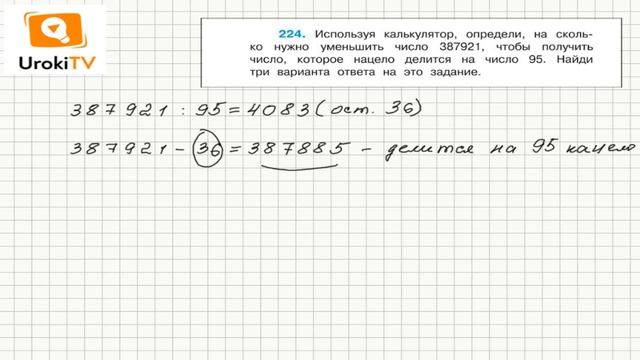 224. Используя калькулятор, определи, на сколь-
ко нужно уменьшить число 387921, чтобы получить
число, которое нацело делится на число 95. Найди
три варианта ответа на это задание.
UrokiTV
387921 : 95 = 4083 (ост. 36)
387921 - 36 = 387885 - делится на 95 нацело